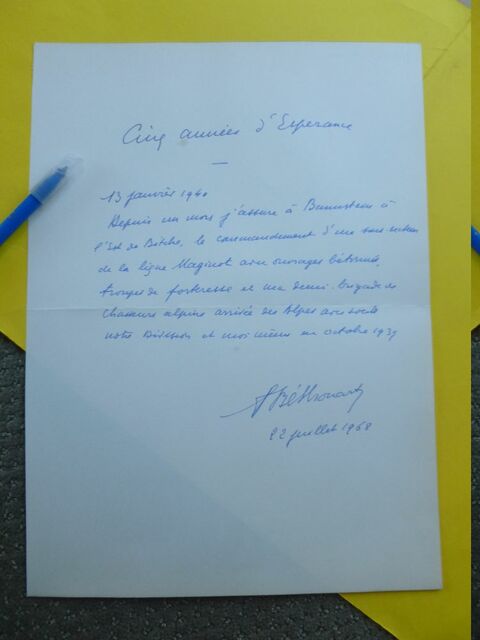 Cinq années d'Esperance
—
13 janvier 1940
Depuis un mois j'assure à Bannstein à
l'Est de Bitche, le commandement d'un sous-secteur
de la ligne Maginot avec ouvrages bétonnés,
troupes de forteresse et ma demi-brigade de
chasseurs alpins arrivée des Alpes avec toute
notre Division et moi même en octobre 1939
Béthouart
22 juillet 1968